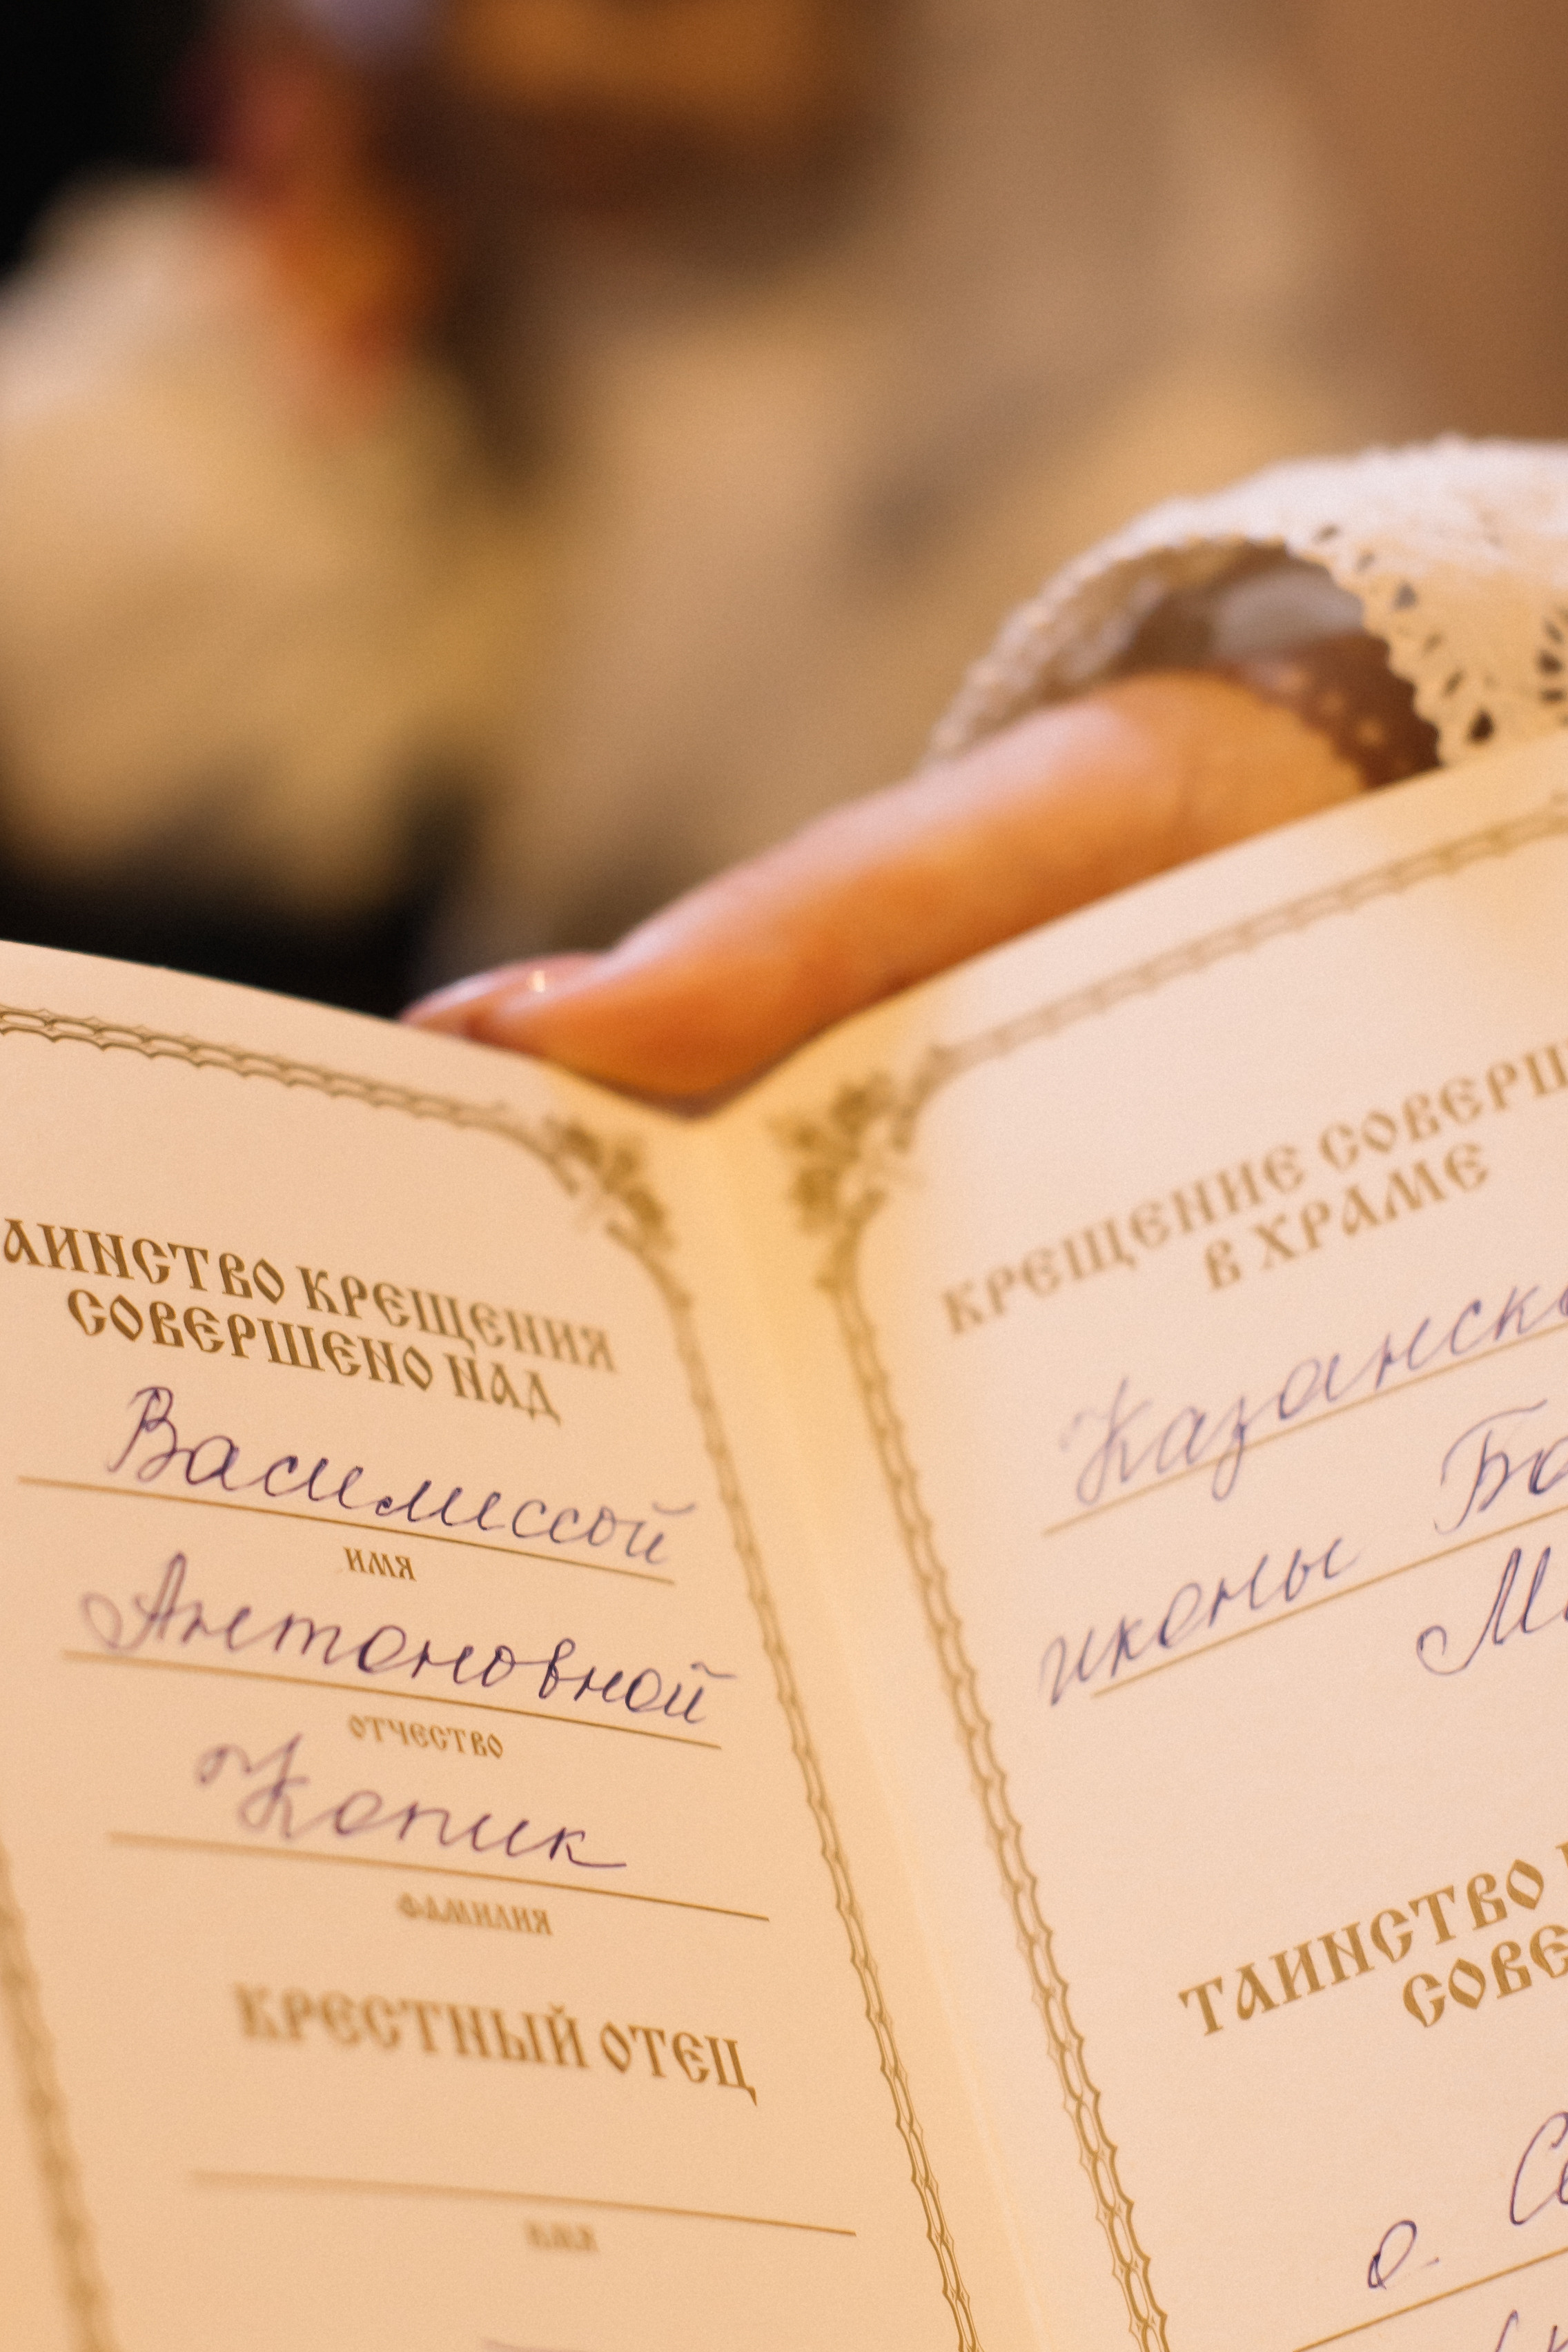 АИНСТВО КРЕЩЕНИЯ
СОВЕРШЕНО НАД
Василиссой
ИМЯ
Антоновной
ОТЧЕСТВО
Копик
ФАМИЛИЯ
КРЕСТНЫЙ ОТЕЦ
ИМЯ
КРЕЩЕНИЕ СОВЕРШ
В ХРАМЕ
Казанско
иконы Бо
М
ТАИНСТВО
СОВЕ
о. Се